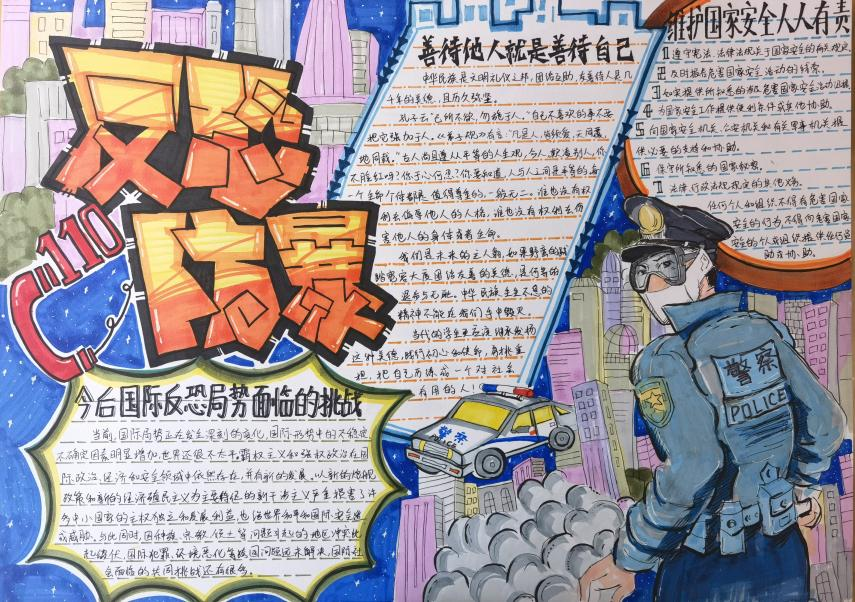 反恐
防暴
110
善待他人就是善待自己
中华民族是文明礼仪之邦,团结互助,友善待人是几
千年的美德,且历久弥坚。
孔子云"己所不欲,勿施于人。"自己不喜欢的事不要
地同载。"古人尚且遵从平等的人生观,与人
一个生命个体都是值得尊重的,一般无二。谁也没有权
利去侮辱他人的人格,谁也没有权利去伤
害他人的身体或者生命。
我们是未来的主人翁,如果
精神不能在我们手中毁灭。
当代的学生更应该继承发扬
这种美德,践行初心和使命,勇挑重
担,把自己历练成一个对社会
有用的人!
维护国家安全人人有责
1 遵守宪法、法律法规关于国家安全的有关规定
2 及时报告危害国家安全活动的线索。
3 如实提供所知悉的涉及危害国家安全活动证据
4 为国家安全工作提供便利条件或其他协助。
5 向国家安全机关、公安机关和有关军事机关提
供必要的支持和协助。
6 保守所知悉的国家秘密。
7 法律、行政法规规定的其他义务。
任何个人和组织不得有危害国家
安全的行为,不得向危害国家
安全的个人或组织提供任何资
助或协助。
今后国际反恐局势面临的挑战
当前,国际局势正在发生深刻的变化,国际形势中的不稳定
不确定因素明显增加,世界还很不太平,霸权主义和强权政治在国
际政治、经济和安全领域中依然存在,并有新的发展。以新的炮舰
政策和新的经济殖民主义为主要特征的新干涉主义严重损害了许
多中小国家的主权独立和发展利益,也给世界和平和国际安全造
成威胁。与此同时,因种族、宗教、领土等问题引起的地区冲突此
起彼伏,国际犯罪、环境恶化等跨国问题远未解决,国际社
会面临的共同挑战还有很多。
警察
警察
POLICE